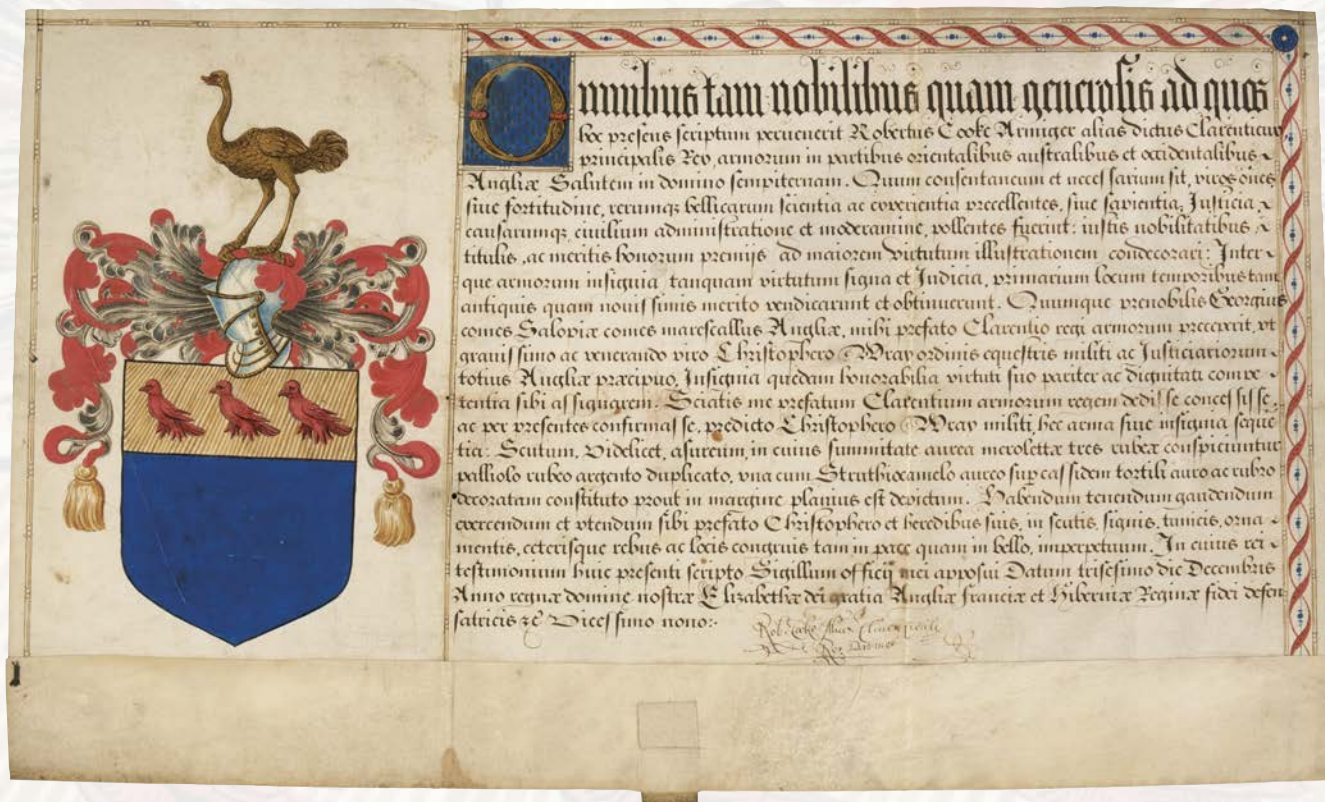 Omnibus tam nobilibus quam generosis ad quos
hec presens scriptum peruenerit Robertus Cooke Armiger alias dictus Clarenticux
principalis Rex armorum in partibus orientalibus australibus et occidentalibus
Angliæ Salutem in domino sempiternam. Quum consentaneum et necessarium sit, viros oñes
siue fortitudine, rerumq; bellicarum scientia ac experientia precellentes, siue sapientia, Justicia
causarumq; ciuilium administratione et moderamine, pollentes fuerint: iustis nobilitatibus
titulis, ac meritis honorum premijs ad maiorem virtutum illustrationem condecorari: Inter
que armorum insignia tanquam virtutum signa et Judicia, primarium locum temporibus tam
antiquis quam nouissimis merito vendicarunt et obtinuerunt. Quumque prenobilis Georgius
comes Salopiæ comes marescallus Angliæ, mihi prefato Clarentio regi armorum preceperit, vt
grauissimo ac venerando viro Christophero Wray ordinis equestris militi ac Justiciariorum
totius Angliæ præcipuo, Insignia quedam honorabilia virtuti suo pariter ac dignitati compe-
tentia sibi assignarem. Sciatis me prefatum Clarentium armorum regem dedisse concessisse,
ac per presentes confirmasse, predicto Christophero Wray militi, hec arma siue insignia seque
tia: Scutum, Videlicet, asureum, in cuius summitate aurea merolettæ tres rubeæ conspiciuntur
palliolo rubeo argento duplicato, vna cum Struthiocamelo aureo sup cassidem tortili auro ac rubro
decoratam constituto prout in margine planius est depictum. Habendum tenendum gaudendum
exercendum et vtendum sibi prefato Christophero et heredibus suis, in scutis, signis, tunicis, orna-
mentis, ceterisque rebus ac locis congruis tam in pace quam in bello, imperpetuum. In cuius rei
testimonium huic presenti scripto Sigillum officij mei apposui Datum trisesimo die Decembris
Anno regnæ domine nostræ Elizabethæ dei gratia Angliæ franciæ et Hiberniæ Reginæ fidei defen
satricis &c Vicessimo nono:-
Rob. Cooke
Roy Darmes